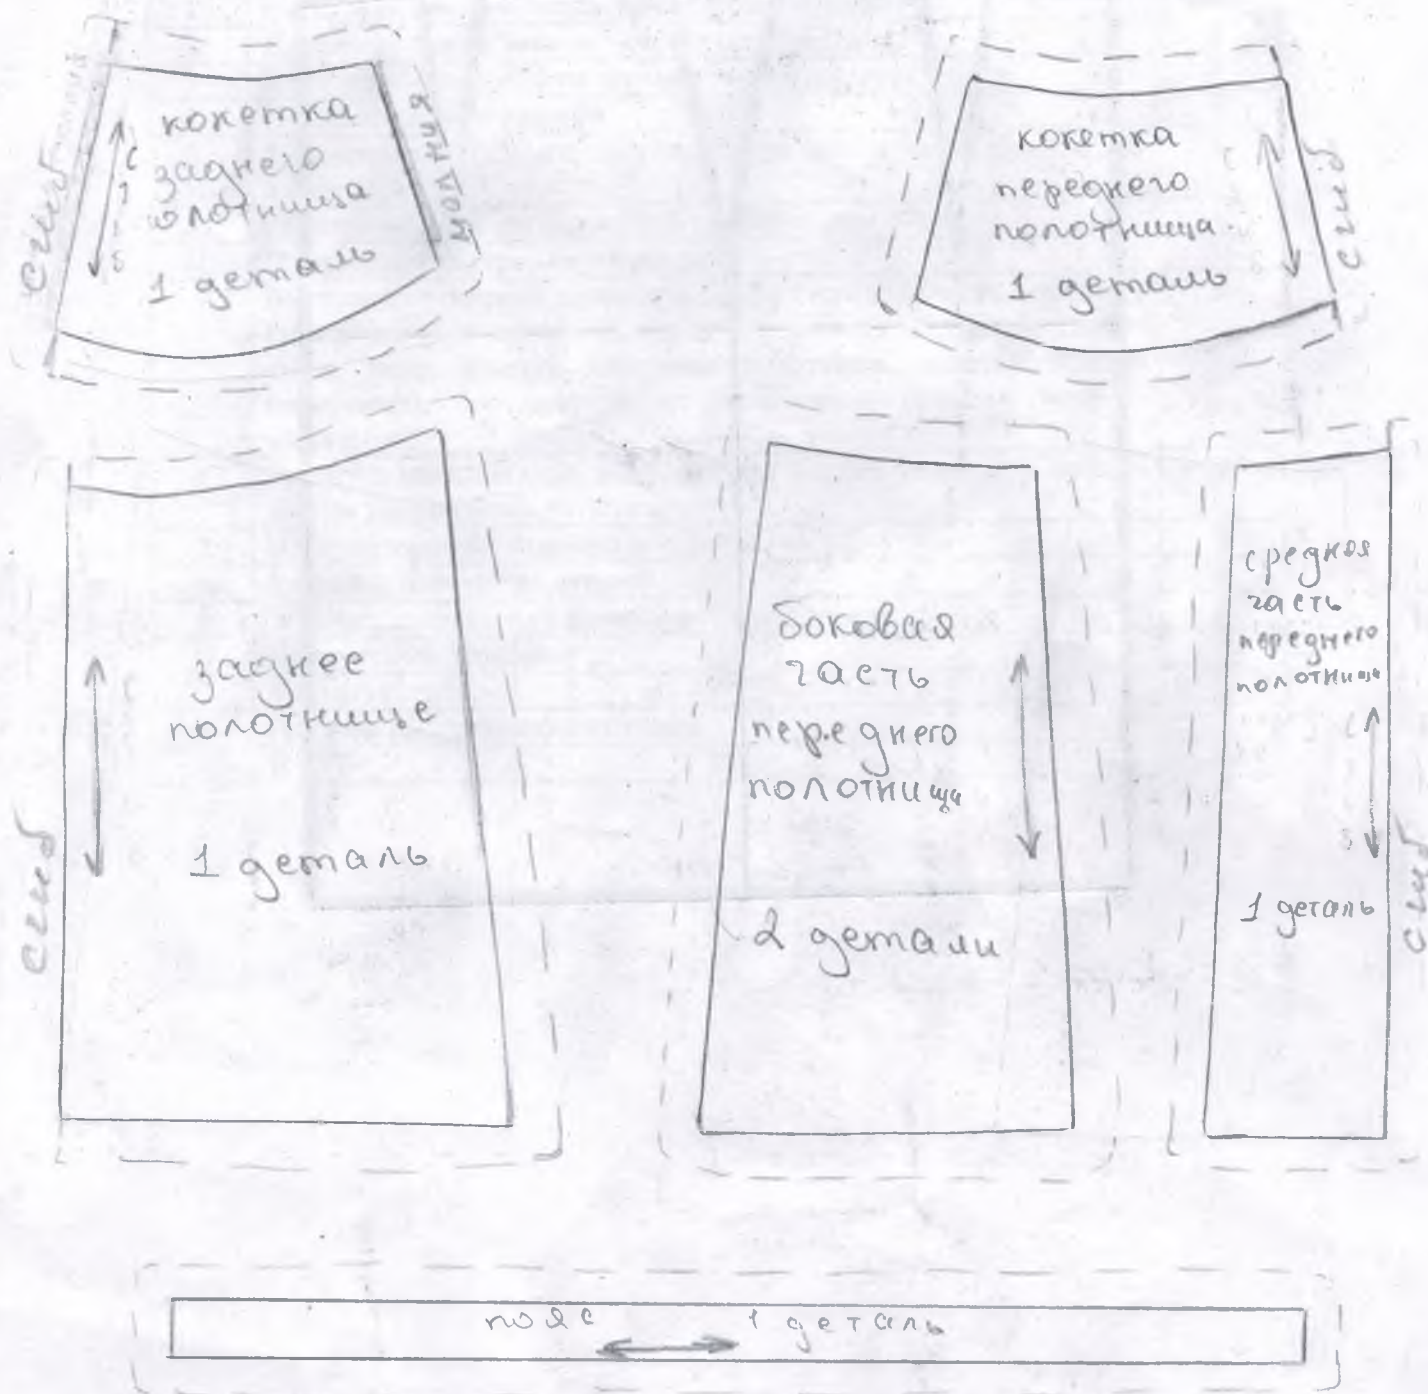 сгиб
кокетка
заднего
полотнища
1 деталь
молния
кокетка
переднего
полотнища
1 деталь
сгиб
сгиб
заднее
полотнище
1 деталь
боковая
часть
переднего
полотнища
2 детали
средняя
часть
переднего
полотнища
1 деталь
сгиб
пояс 1 деталь